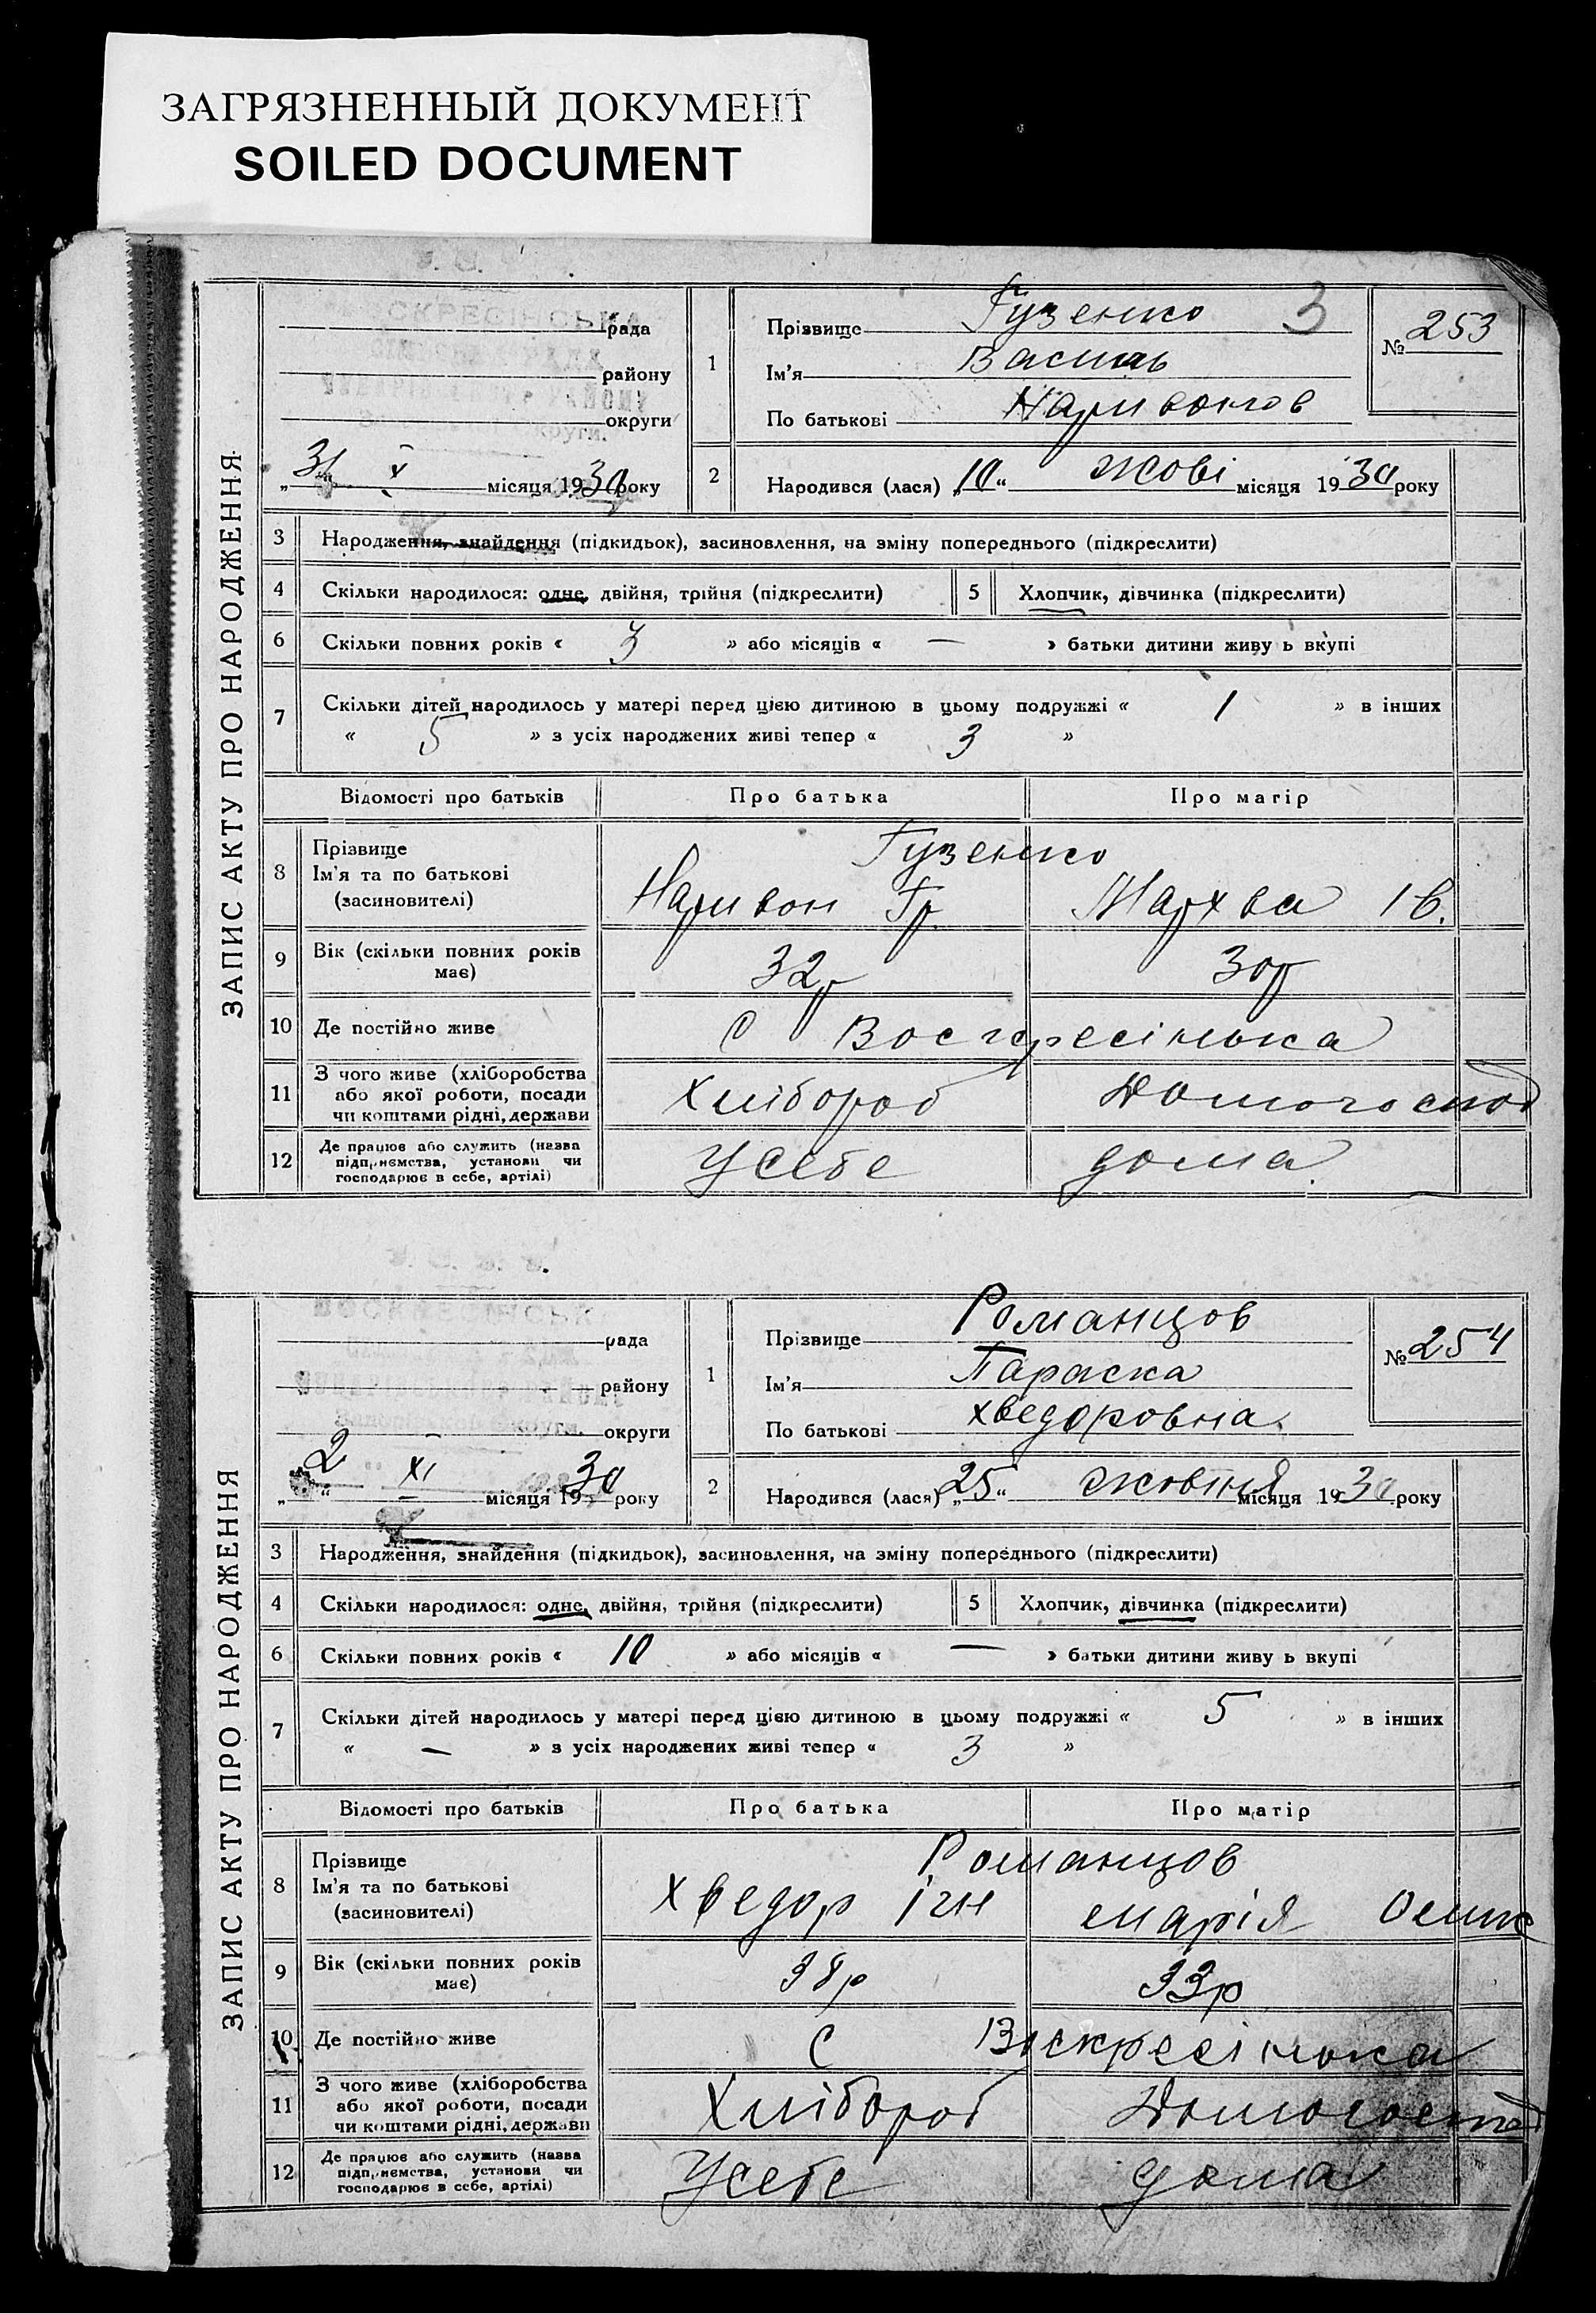 ЗАГРЯЗНЕННЫЙ ДОКУМЕНТ
SOILED DOCUMENT
ЗАПИС АКТУ ПРО НАРОДЖЕННЯ
рада
району
округи
„31“ X місяця 1930 року
1
Прізвище Гузенко 3
Ім'я Василь
По батькові Наривонов
№ 253
2
Народився (лася) „10“ жові місяця 1930 року
3 Народження, знайдення (підкидьок), засиновлення, на зміну попереднього (підкреслити)
4 Скільки народилося: одне, двійня, трійня (підкреслити) 5 Хлопчик, дівчинка (підкреслити)
6 Скільки повних років « 3 » або місяців « — » батьки дитини живу ь вкупі
7 Скільки дітей народилось у матері перед цією дитиною в цьому подружжі « 1 » в інших
« 5 » з усіх народжених живі тепер « 3 »
Відомості про батьків Про батька Про матір
8 Прізвище Гузенко
Ім'я та по батькові Наривон Гр. Мархва Ів.
(засиновителі)
9 Вік (скільки повних років 32р 30р
має)
10 Де постійно живе С Воскресінька
11 З чого живе (хліборобства
або якої роботи, посади Хлібороб Домогоспод
чи коштами рідні, держави
12 Де працює або служить (назва
підприємства, установи чи У себе дома
господарює в себе, артілі)
ЗАПИС АКТУ ПРО НАРОДЖЕННЯ
рада
району
округи
„2“ XI місяця 1930 року
1
Прізвище Романцов
Ім'я Параска
По батькові Хведоровна
№ 254
2
Народився (лася) „25“ жовтня місяця 1930 року
3 Народження, знайдення (підкидьок), засиновлення, на зміну попереднього (підкреслити)
4 Скільки народилося: одне, двійня, трійня (підкреслити) 5 Хлопчик, дівчинка (підкреслити)
6 Скільки повних років « 10 » або місяців « — » батьки дитини живу ь вкупі
7 Скільки дітей народилось у матері перед цією дитиною в цьому подружжі « 5 » в інших
« — » з усіх народжених живі тепер « 3 »
Відомості про батьків Про батька Про матір
8 Прізвище Романцов
Ім'я та по батькові Хведор Ігн Марія
(засиновителі)
9 Вік (скільки повних років 38р 33р
має)
10 Де постійно живе С Воскресінька
11 З чого живе (хліборобства
або якої роботи, посади Хлібороб Домогоспод
чи коштами рідні, держави
12 Де працює або служить (назва
підприємства, установи чи У себе дома
господарює в себе, артілі)